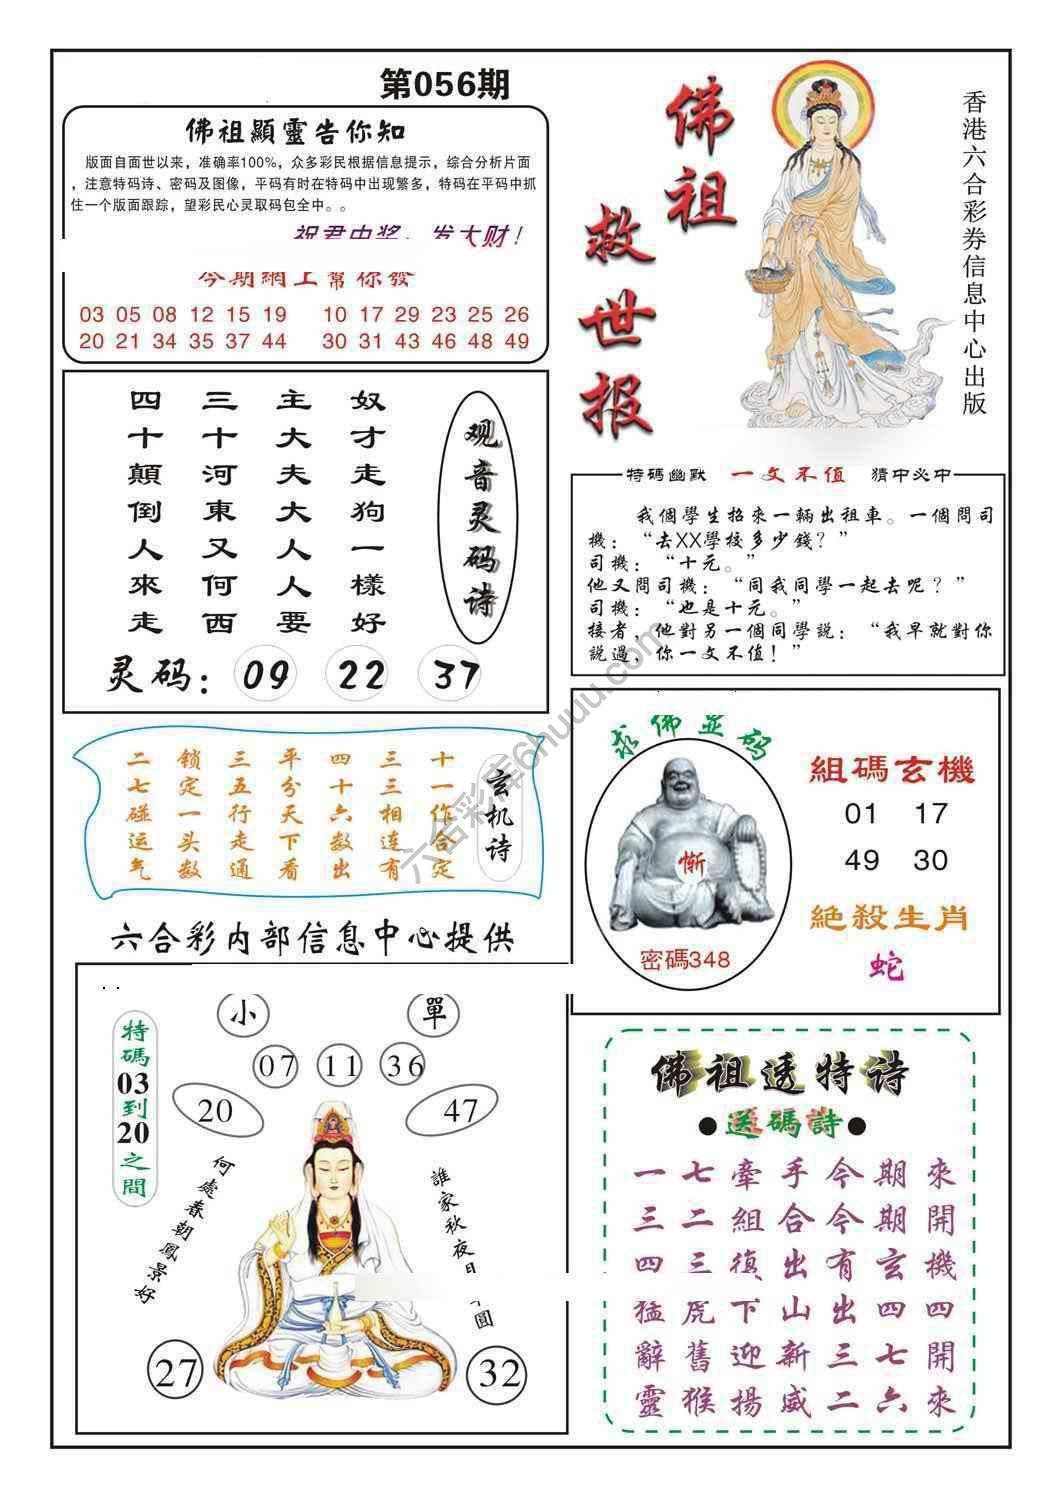 第056期
佛祖顯靈告你知
版面自面世以来，准确率100%，众多彩民根据信息提示，综合分析片面
，注意特码诗、密码及图像，平码有时在特码中出现繁多，特码在平码中抓
住一个版面跟踪，望彩民心灵取码包全中。。
祝君中奖，发大财！
今期網上幫你發
03 05 08 12 15 19 10 17 29 23 25 26
20 21 34 35 37 44 30 31 43 46 48 49
佛祖
救世报
香港六合彩券信息中心出版
观音灵码诗
奴才走狗一樣好
主大夫大人人要
三十河東又何西
四十顛倒人來走
灵码：09 22 37
特碼幽默 一文不值 猜中必中
我個學生招來一輛出租車。一個問司
機：“去XX學校多少錢？”
司機：“十元。”
他又問司機：“同我同學一起去呢？”
司機：“也是十元。”
接着，他對另一個同學説：“我早就對你
説過，你一文不值！”
玄机诗
十一作合定
三三相连有
四十六数出
平分天下看
三五行走通
锁定一头数
二七碰运气
求佛显码
惭
密碼348
組碼玄機
01 17
49 30
絶殺生肖
蛇
六合彩内部信息中心提供
特碼03到20之間
小 單
07 11 36
20 47
何處春朝鳳景好
誰家秋夜月
圓
27 32
佛祖透特诗
●送碼詩●
一七牽手今期來
三二組合今期開
四三復出有玄機
猛虎下山出四四
辭舊迎新三七開
靈猴揚威二六來
六合彩库6huuu.com